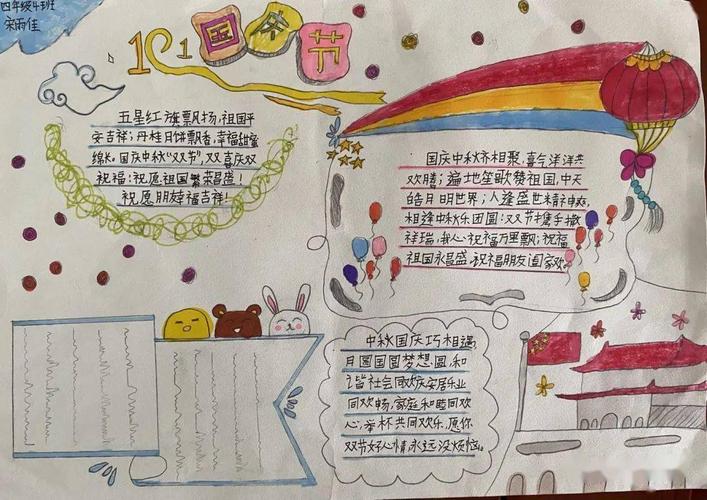 四年级4班
宋雨佳
10.1国庆节
五星红旗飘扬,祖国平
安吉祥;丹桂月饼飘香,幸福甜蜜
绵长。国庆中秋“双节”,双喜庆双
祝福:祝愿祖国繁荣昌盛!
祝愿朋友幸福吉祥!
国庆中秋齐相聚,喜气洋洋共
欢腾;遍地笙歌赞祖国,中天
皓月明世界;人逢盛世精神爽,
相逢中秋乐团圆:双节携手撒
祥瑞,我心祝福万里飘;祝福
祖国永昌盛,祝福朋友阖家欢。
中秋国庆巧相遇,
月圆国圆梦想圆,和
谐社会同欢庆安居乐业
同欢畅,家庭和睦同欢
心,举杯共同欢乐,愿你
双节好心情,永远没烦恼。